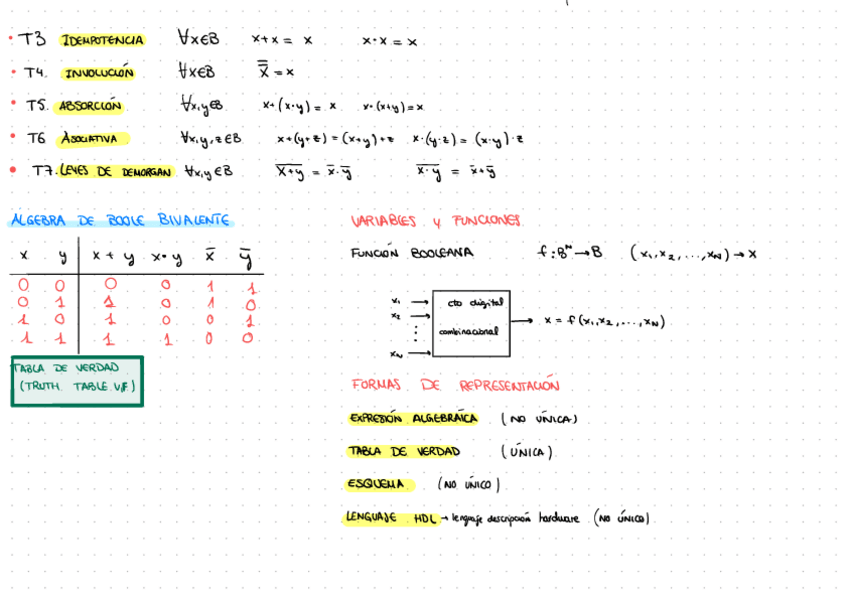 • T3 IDEMPOTENCIA ∀x∈B x+x = x x·x = x
• T4. INVOLUCIÓN ∀x∈B x̿ = x
• T5. ABSORCIÓN ∀x,y∈B x+(x·y) = x x·(x+y) = x
• T6 ASOCIATIVA ∀x,y,z∈B x+(y+z) = (x+y)+z x·(y·z) = (x·y)·z
• T7. LEYES DE DEMORGAN ∀x,y∈B \overline{x+y} = x̄·ȳ \overline{x·y} = x̄+ȳ
ÁLGEBRA DE BOOLE BIVALENTE
x y x + y x·y x̄ ȳ
0 0 0 0 1 1
0 1 1 0 1 0
1 0 1 0 0 1
1 1 1 1 0 0
TABLA DE VERDAD
(TRUTH TABLE V/F)
VARIABLES y FUNCIONES
FUNCIÓN BOOLEANA f:Bᴺ→B (x₁,x₂,...,xN) → x
x₁
x₂
⋮
xN
cto digital
combinacional
x = f(x₁,x₂,...,xN)
FORMAS DE REPRESENTACIÓN
EXPRESIÓN ALGEBRÁICA (NO ÚNICA)
TABLA DE VERDAD (ÚNICA)
ESQUEMA (NO ÚNICO)
LENGUAJE HDL → lenguaje descripción hardware (NO ÚNICO)